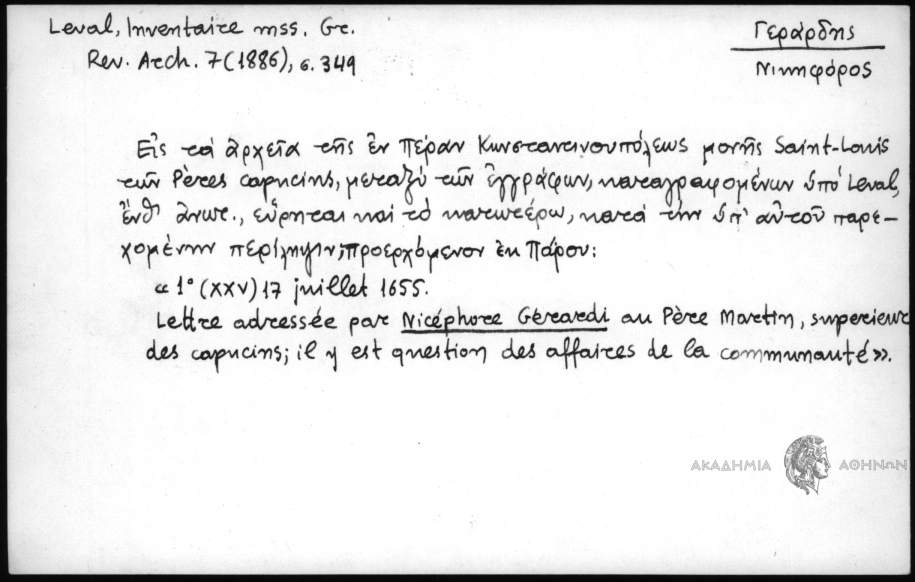 Leval, Inventaire mss. Gr.
Rev. Arch. 7 (1886), σ. 349
Γεράρδης
Νικηφόρος
Εἰς τά ἀρχεῖα τῆς ἐν Πέραν Κωνσταντινουπόλεως μονῆς Saint-Louis
τῶν Pères capucins, μεταξύ τῶν ἐγγράφων, καταγραφομένων ὑπό Leval,
ἔνθ' ἀνωτ., εὕρηται καί τό κατωτέρω, κατά τήν ὑπ' αὐτοῦ παρε-
χομένην περίληψιν, προερχόμενον ἐκ Πάρου:
« 1° (XXV) 17 juillet 1655.
Lettre adressée par Nicéphore Gérardi au Père Martin, superieur
des capucins; il y est question des affaires de la communauté».
ΑΚΑΔΗΜΙΑ ΑΘΗΝΩΝ